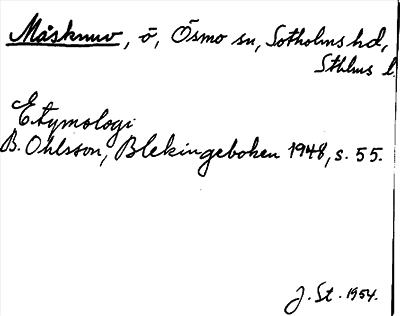 Måsknuv, ö, Ösmo sn, Sotholms hd,
Sthlms l.
Etymologi
B. Ohlsson, Blekingeboken 1948, s. 55.
J. St. 1954.